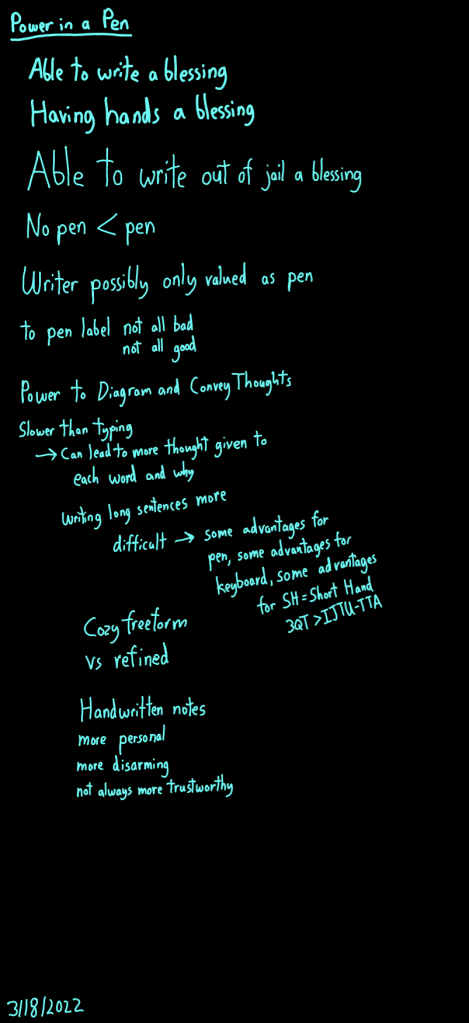 Power in a Pen
Able to write a blessing
Having hands a blessing
Able to write out of jail a blessing
No pen < pen
Writer possibly only valued as pen
to pen label not all bad
not all good
Power to Diagram and Convey Thoughts
Slower than typing
→ Can lead to more thought given to
each word and why
Writing long sentences more
difficult → some advantages for
pen, some advantages for
keyboard, some advantages
for SH = Short Hand
3QT > IJTU-TTA
Cozy freeform
vs refined
Handwritten notes
more personal
more disarming
not always more trustworthy
3/18/2022